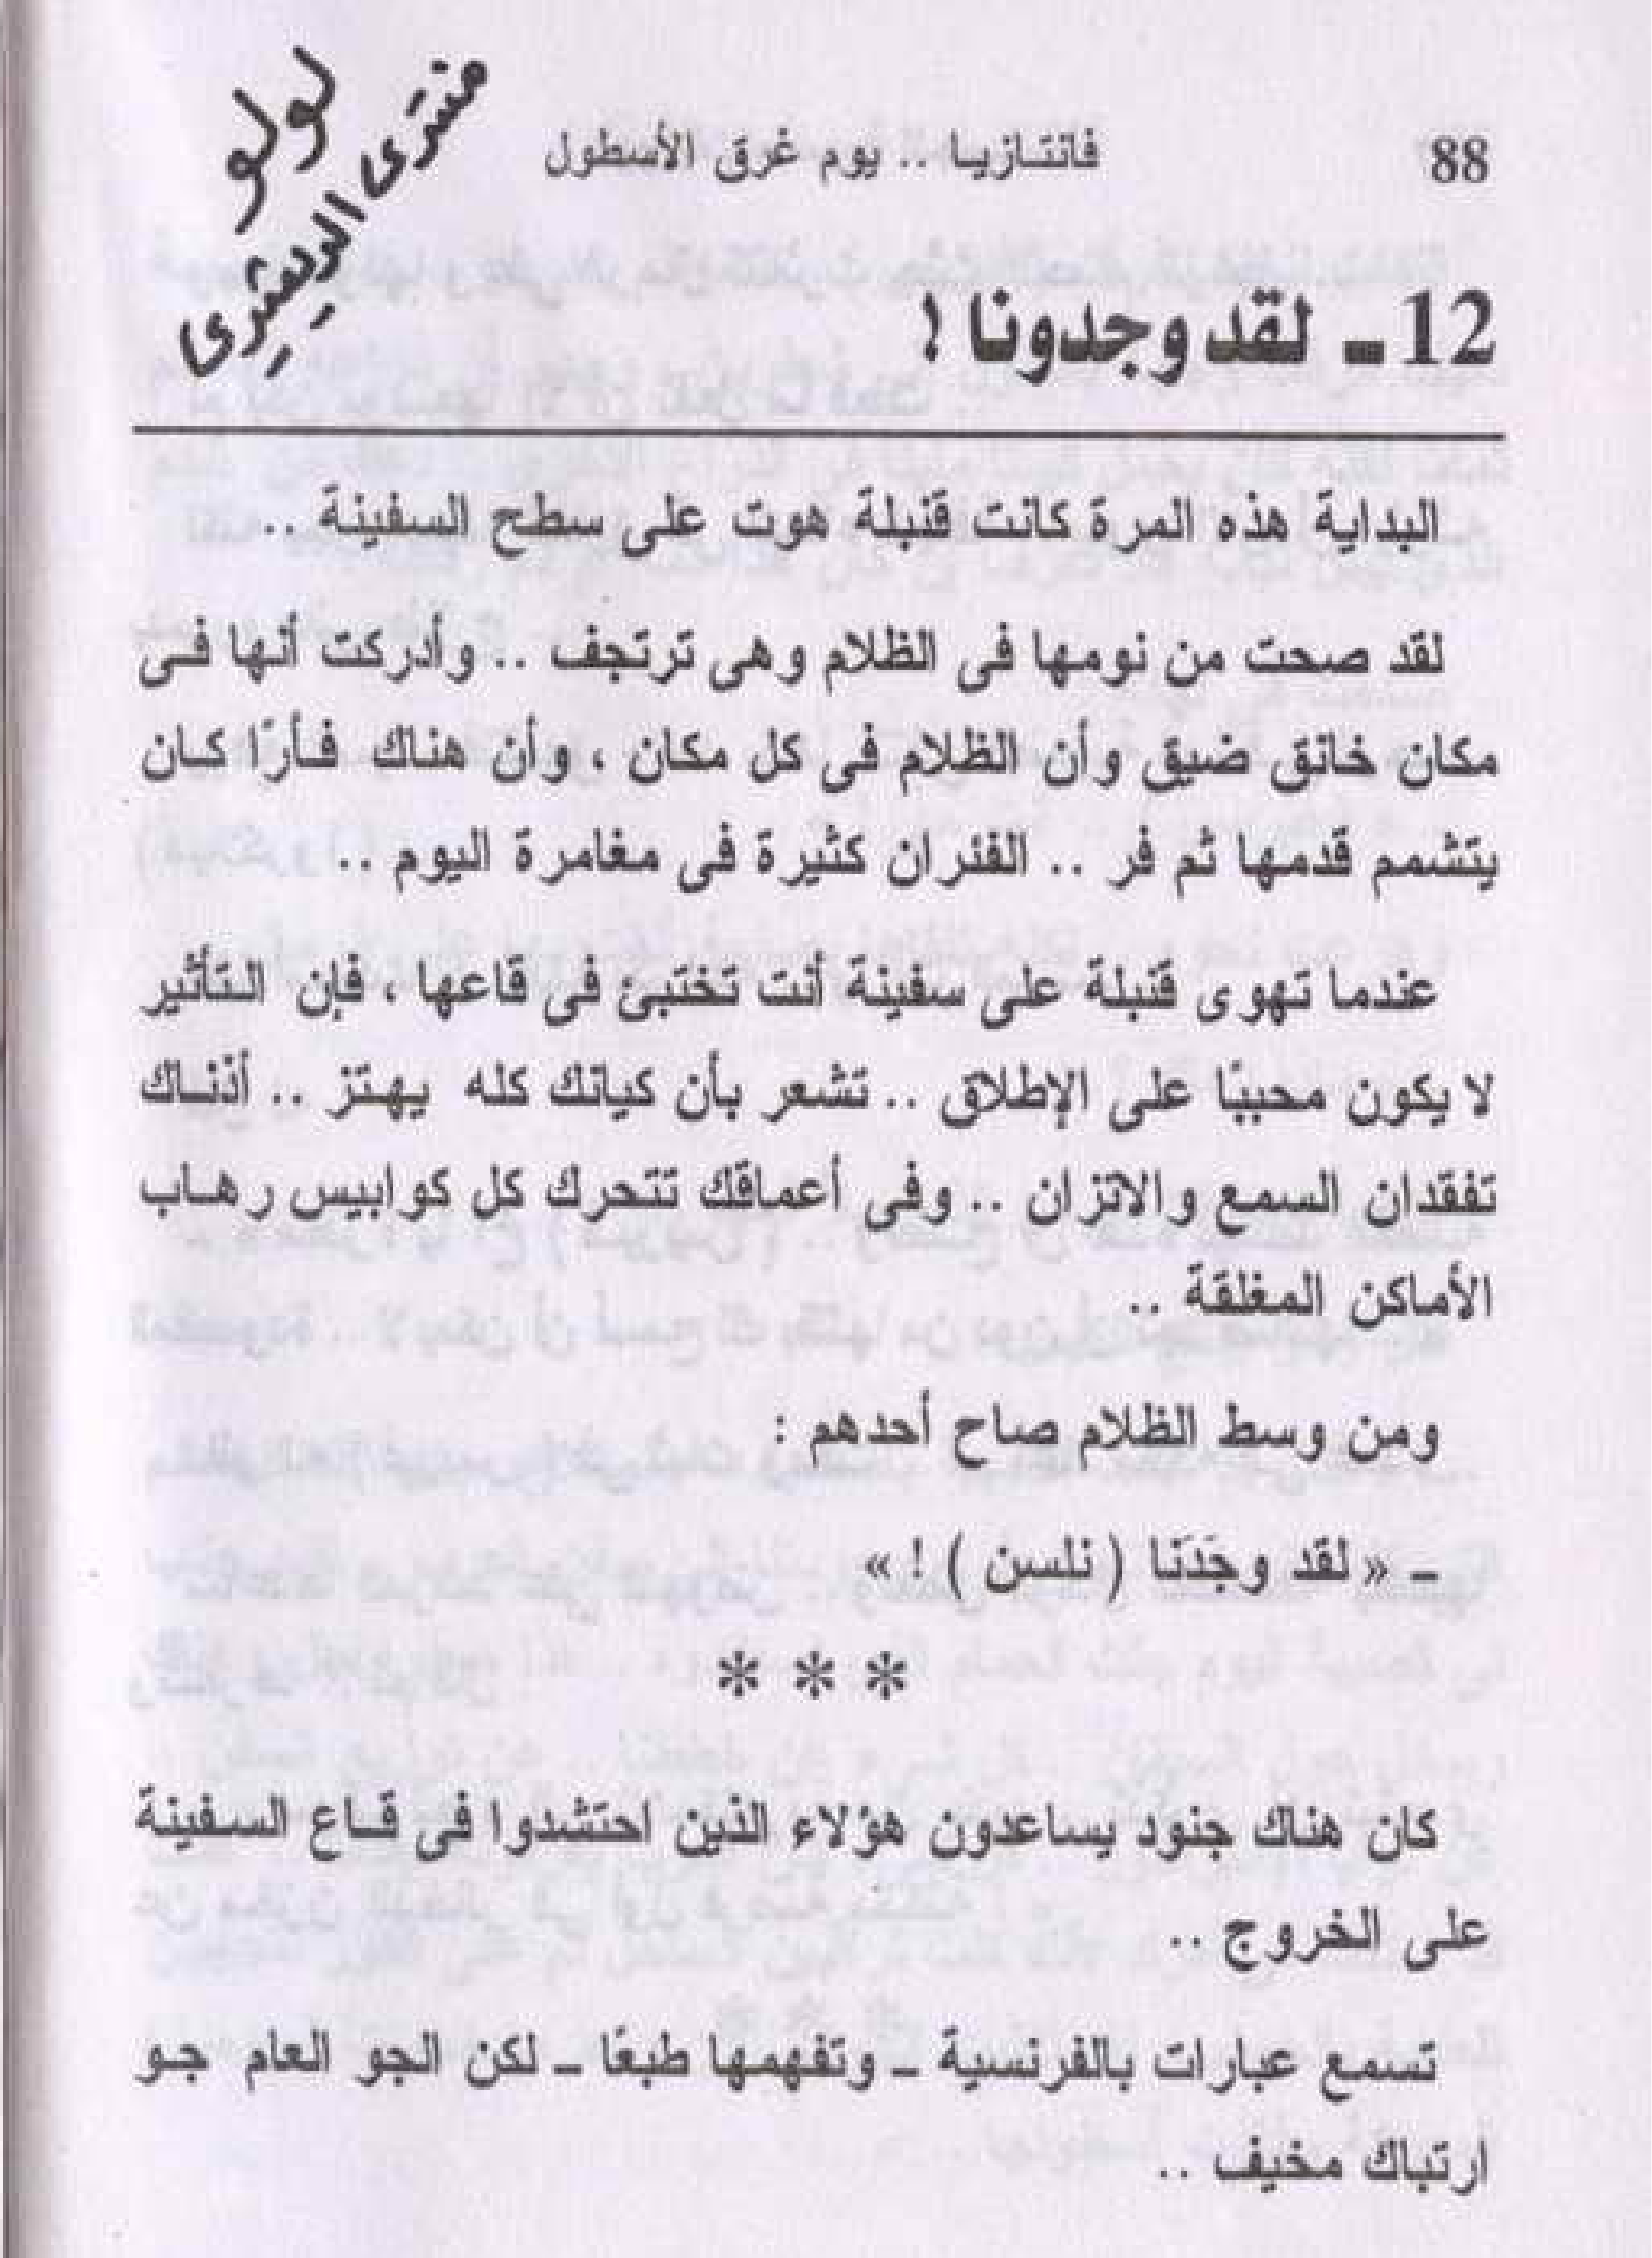 88
فانتازيا .. يوم غرق الأسطول
لولو
منتدى الديستيرى
12 ـ لقد وجدونا !
البداية هذه المرة كانت قنبلة هوت على سطح السفينة ..
لقد صحت من نومها فى الظلام وهى ترتجف .. وأدركت أنها فى
مكان خانق ضيق وأن الظلام فى كل مكان ، وأن هناك فأرًا كان
يتشمم قدمها ثم فر .. الفئران كثيرة فى مغامرة اليوم ..
عندما تهوى قنبلة على سفينة أنت تختبئ فى قاعها ، فإن التأثير
لا يكون محببًا على الإطلاق .. تشعر بأن كيانك كله يهتز .. أذناك
تفقدان السمع والاتزان .. وفى أعماقك تتحرك كل كوابيس رهاب
الأماكن المغلقة ..
ومن وسط الظلام صاح أحدهم :
ـ « لقد وجَدَنا ( نلسن ) ! »
* * *
كان هناك جنود يساعدون هؤلاء الذين احتشدوا فى قاع السفينة
على الخروج ..
تسمع عبارات بالفرنسية ـ وتفهمها طبعًا ـ لكن الجو العام جو
ارتباك مخيف ..